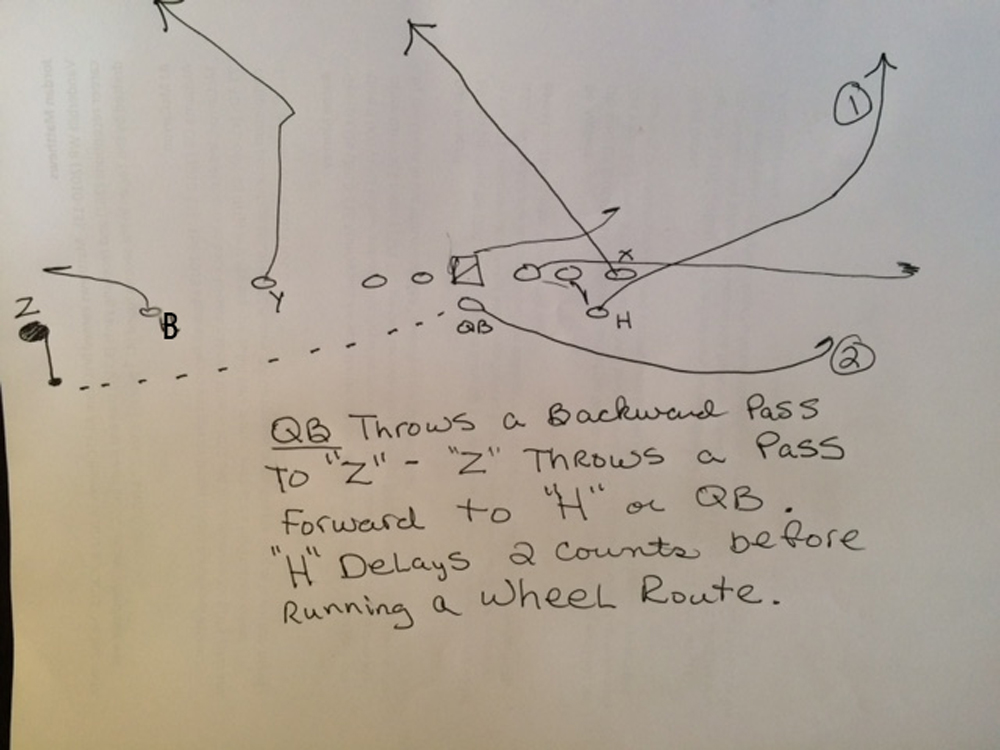 1
X
Z
B
Y
QB
H
2
QB Throws a Backward Pass
To "Z" - "Z" Throws a Pass
Forward to "H" or QB.
"H" Delays 2 counts before
Running a Wheel Route.